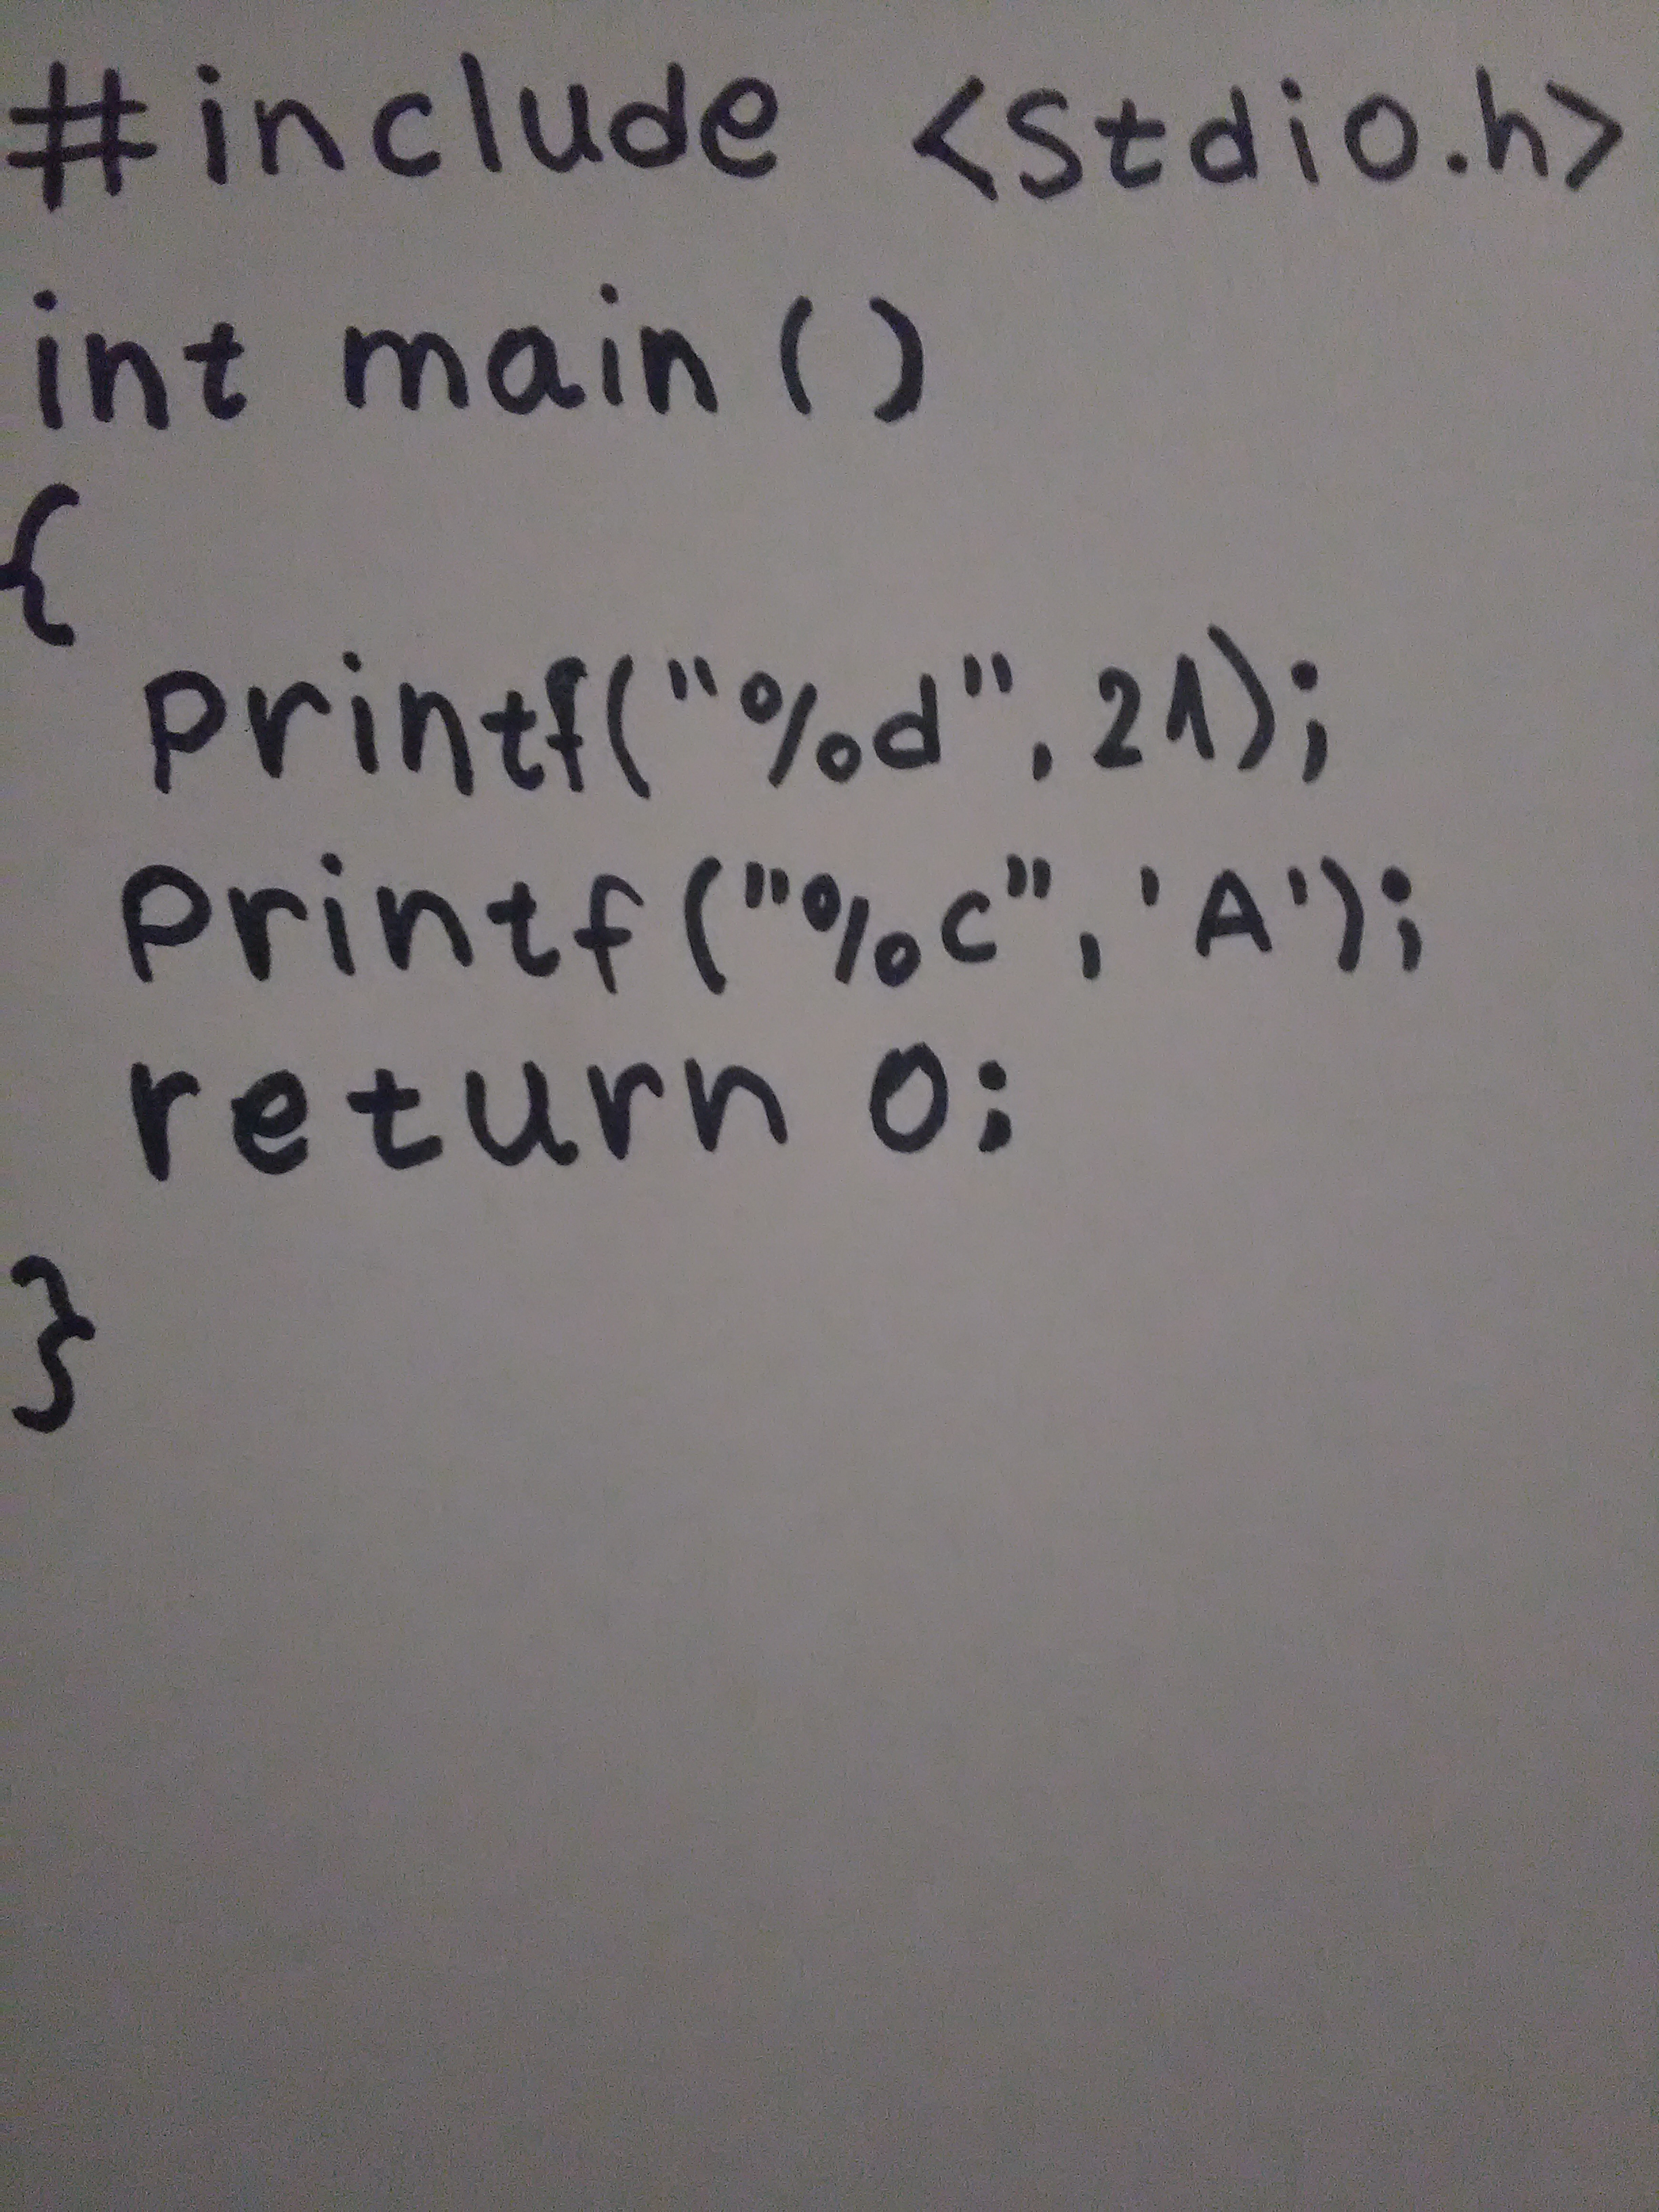 #include <stdio.h>
int main()
{
printf("%d", 21);
printf("%c", 'A');
return 0;
}